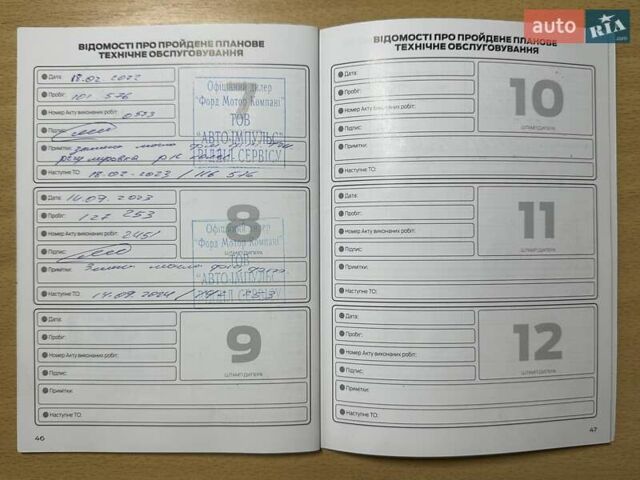 auto RIA
.com
ВІДОМОСТІ ПРО ПРОЙДЕНЕ ПЛАНОВЕ
ТЕХНІЧНЕ ОБСЛУГОВУВАННЯ
Дата: 18.02.2022
Пробіг: 101 576
Номер Акту виконаних робіт: 0573
Підпис:
Примітки: заміна масло
регулировка
Наступне ТО: 18.02-2023 / 116 576
7
Офіційний дилер
"Форд Мотор Компані"
ТОВ
"АВТО-ІМПУЛЬС"
ВІДДІЛ СЕРВІСУ
Дата: 14.09.2023
Пробіг: 127 253
Номер Акту виконаних робіт: 2451
Підпис:
Примітки: Заміна масло
Наступне ТО: 14.09.2024 /
8
Офіційний дилер
"Форд Мотор Компані"
ТОВ
"АВТО-ІМПУЛЬС"
ВІДДІЛ СЕРВІСУ
Дата:
Пробіг:
Номер Акту виконаних робіт:
Підпис:
Примітки:
Наступне ТО:
9
ШТАМП ДИЛЕРА
46
ВІДОМОСТІ ПРО ПРОЙДЕНЕ ПЛАНОВЕ
ТЕХНІЧНЕ ОБСЛУГОВУВАННЯ
Дата:
Пробіг:
Номер Акту виконаних робіт:
Підпис:
Примітки:
Наступне ТО:
10
ШТАМП ДИЛЕРА
Дата:
Пробіг:
Номер Акту виконаних робіт:
Підпис:
Примітки:
Наступне ТО:
11
ШТАМП ДИЛЕРА
Дата:
Пробіг:
Номер Акту виконаних робіт:
Підпис:
Примітки:
Наступне ТО:
12
ШТАМП ДИЛЕРА
47